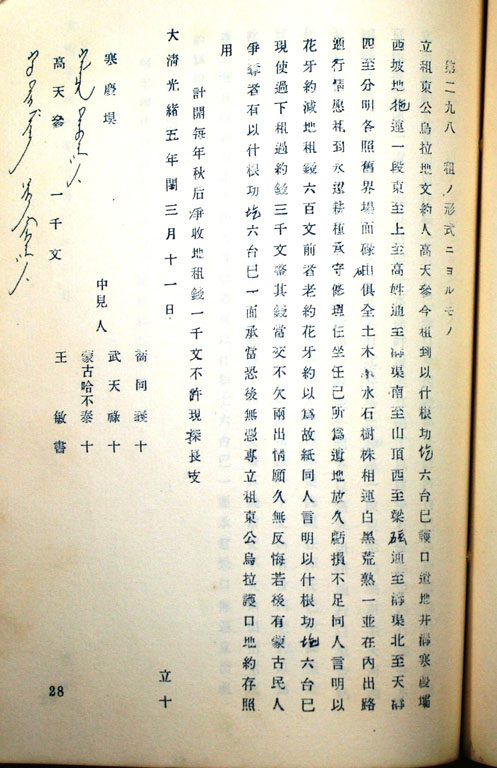 第二九八　租ノ形式ニヨルモノ
立租東公烏拉地文約人高天參今租到以什根功圪六台巳護口道地井溝寒慶壩
西坡地拖連一段東至上至高姓通至溝渠南至山頂西至梁硲通至溝渠北至天溝
四至分明各照舊界場面碌由俱全土木水石樹株相連白黑荒熟一並在內出路
通行情愿租到永遠耕種承守修理任坐任己所為道地放久虧損不足同人言明以
花牙約減地租錢六百文前者老約花牙約以為故紙同人言明以什根功圪六台巳
現使過下租過約錢三千文整其錢當交不欠兩出情願久無反悔若後有蒙古民人
爭奪者有以什根功圪六台巳一面承當恐後無憑專立租東公烏拉護口地約存照
用
計開每年秋后凈收地租錢一千文不許現探長支
大清光緒五年閏三月十一日　立十
中見人　同　十
武天祿十
蒙古哈不泰十
王　敏書
寒慶堁
高天參　一千文
28